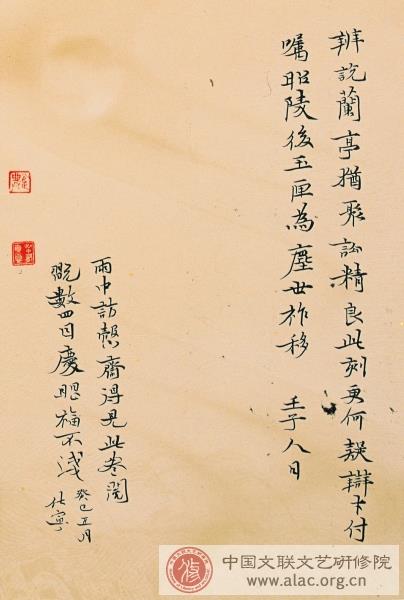 辨說蘭亭猶聚訟精良此刻更何疑辯才付
囑昭陵後玉匣為塵世祚移 壬子人日
雨中訪慤齋得見此卷閱
翫數四自慶眼福不淺 癸巳五月
仕寧
中国文联文艺研修院
www.alac.org.cn